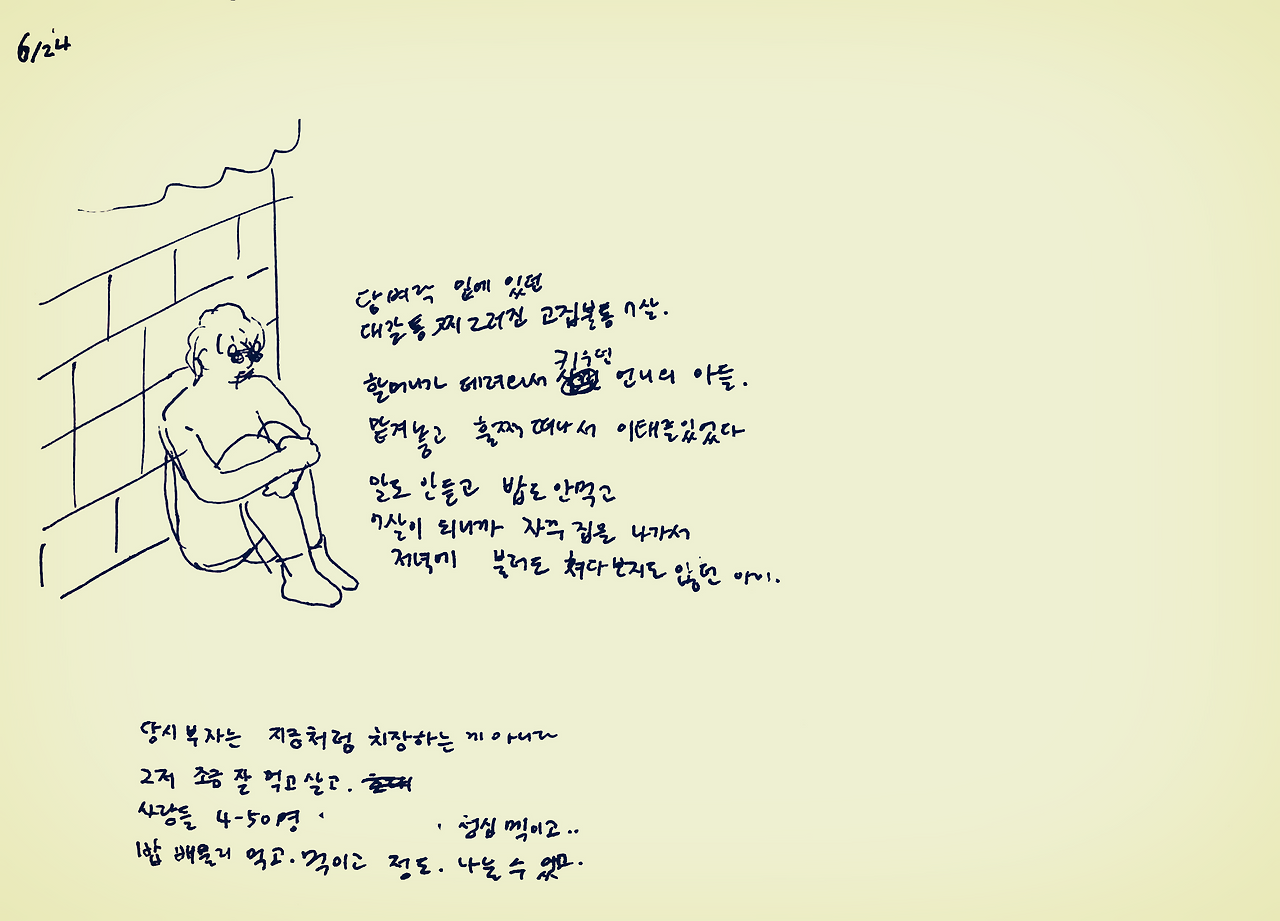 6/24
담벼락 밑에 있던
대갈통 찌그러진 고집불통 7살.
키우던
할머니가 데려와서 언니의 아들.
맡겨놓고 훌쩍 떠나서 이태를있었다
말도 안듣고 밥도 안먹고
7살이 되니까 자꾸 집을 나가서
저녁에 불러도 쳐다보지도 않던 아이.
당시 부자는 지금처럼 치장하는 게 아니다
그저 조금 잘 먹고 살고.
사람들 4-50명 점심 먹이고..
밥 배불리 먹고. 먹이고 정도. 나눌 수 있고.